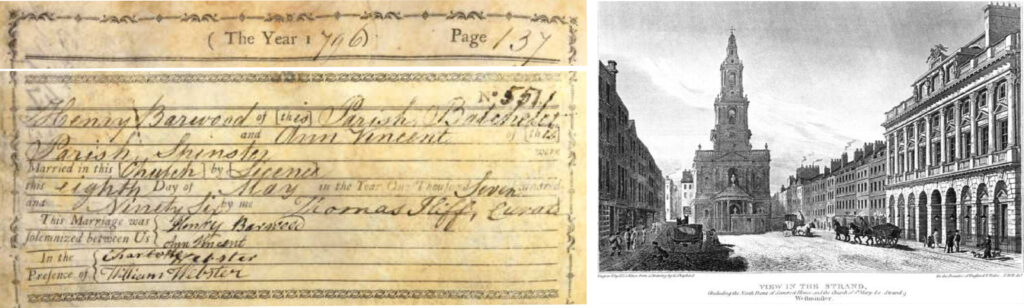 ( The Year 1796) Page 137
No 551
Henry Barwood of (this) Parish, Batchelor
and Ann Vincent of (this
Parish, Spinster were
Married in this (Church) by (Licence
this eighth Day of May in the Year One Thousand Seven Hundred
and Ninety Six by me Thomas Iliff, Curate
This Marriage was { Henry Barwood
solemnized between Us { Ann Vincent
In the { Charlotte Webster
Presence of { William Webster
VIEW IN THE STRAND,
(Including the North Front of Somerset House and the Church of St Mary le Strand;)
Westminster.